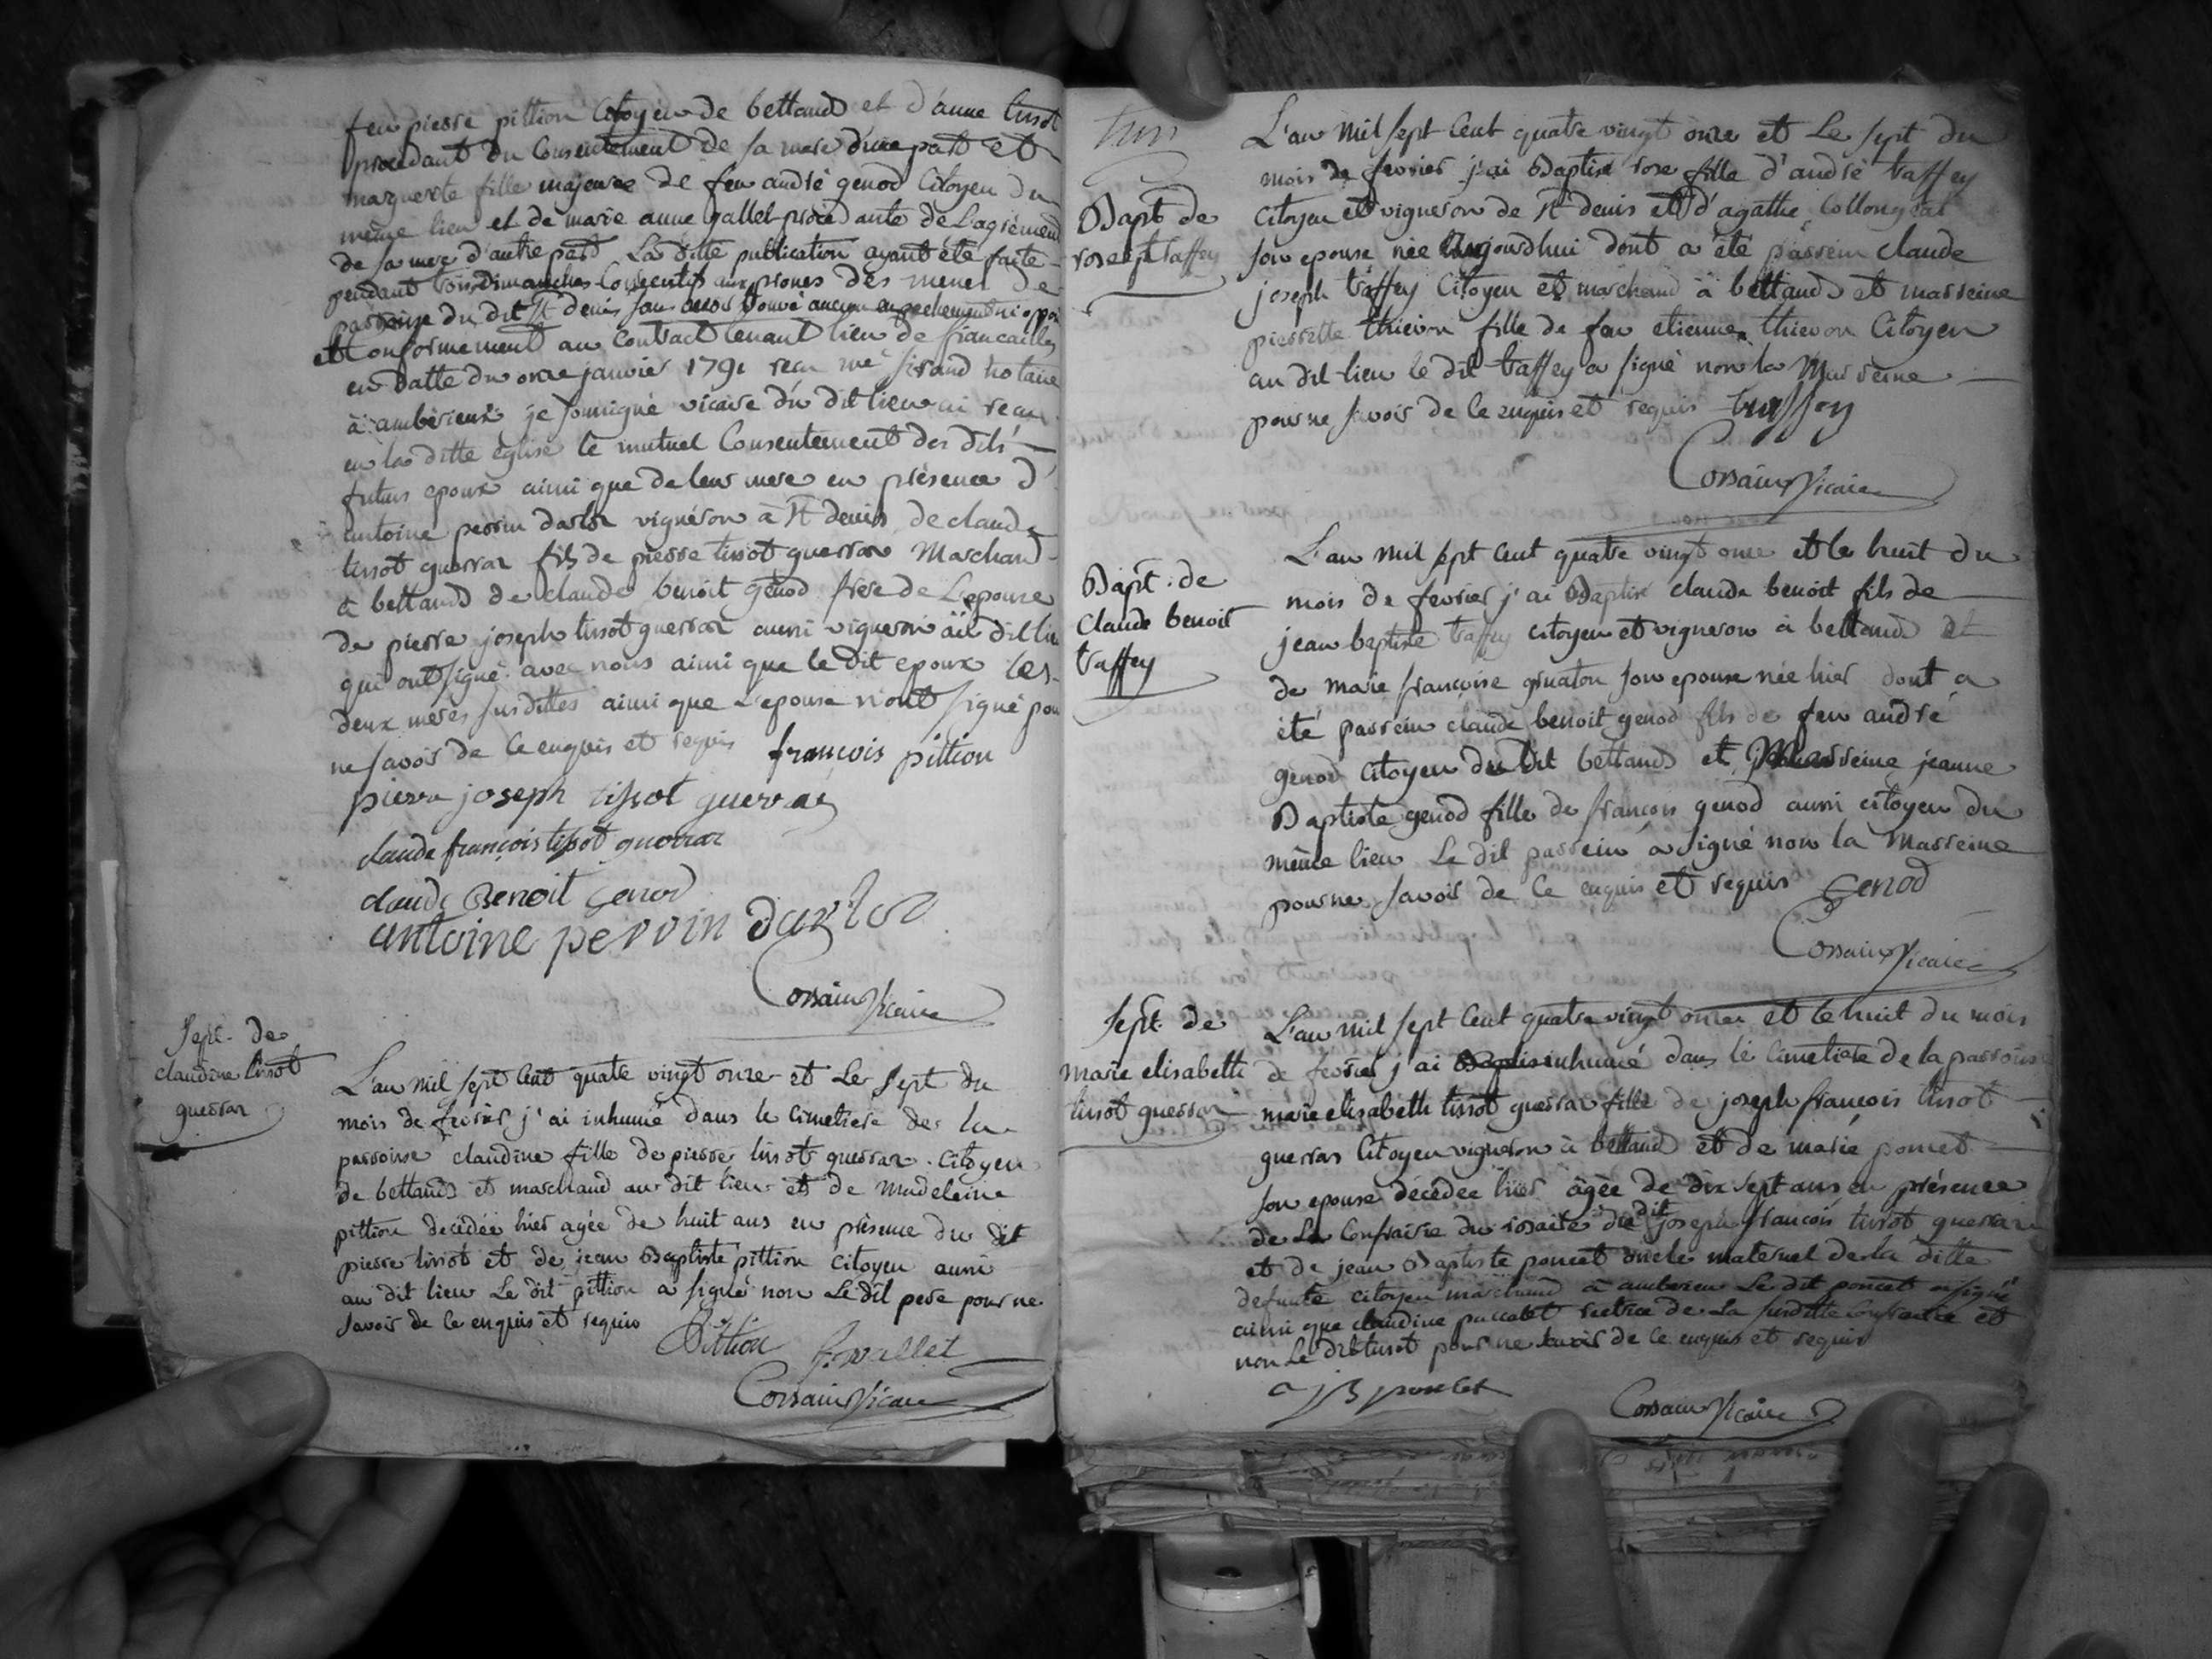 feu pierre pittion Citoyen de bettand et d'anne tissot
procedant du Consentement de sa mere d'une part et
marguerite fille majeure de feu andré genod Citoyen du
même lieu et de marie anne gallet procedante de L'agrément
de sa mere d'autre part La ditte publication ayant été faite
pendant trois dimanches Consecutifs aux prones des messes de
parroisse du dit St denis sans avoir trouvé aucun empechement ni oppo
et Conformement au Contract tenant lieu de fiancailles
en datte du onze janvier 1791 recu me sirand notaire
à amberieux je soussigné vicaire du dit lieu ai recu
en la ditte eglise le mutuel Consentement des dits
futurs epoux ainsi que de leur mere en présence d'
antoine perrin darloz vigneron à St denis de claude
tissot guerraz fils de pierre tissot guerraz Marchand
à bettand de claude benoit genod frere de L'epouse
de pierre joseph tissot guerraz aussi vigneron au dit lieu
qui ont signé avec nous ainsi que le dit epoux les
deux meres susdittes ainsi que L'epouse n'ont signé pour
ne savoir de ce enquis et requis françois pittion
pierre joseph tissot guerraz
claude françois tissot guerraz
claude Benoit Genod
antoine perroin darloz
Cossain Vicaire
Sept. de
claudine tissot
guerraz
L'an mil sept cent quatre vingt onze et Le sept du
mois de fevrier j'ai inhumé dans le Cimetiere de la
parroisse claudine fille de pierre tissot guerraz Citoyen
de bettand et marchand au dit lieu et de Madeleine
pittion decedée hier agée de huit ans en présence du dit
pierre tissot et de jean Baptiste pittion Citoyen aussi
au dit lieu Le dit pittion a signé non Le dit pere pour ne
savoir de ce enquis et requis
Pittion
Cossain Vicaire
L'an mil sept cent quatre vingt onze et Le sept du
mois de fevrier j'ai Baptisé rose fille d'andré traffey
Citoyen et vigneron de St denis et d'agathe Collongeat
son epouse née aujourdhui dont a été parrein claude
joseph traffey Citoyen et marchand à bettand et marreine
pierrette thievon fille de feu etienne thievon Citoyen
au dit lieu le dit traffey a signé non la Marreine
pour ne savoir de ce enquis et requis traffey
Cossain Vicaire
Bapt de
rose traffey
L'an mil sept cent quatre vingt onze et le huit du
mois de fevrier j'ai Baptisé claude benoit fils de
jean baptiste traffey citoyen et vigneron à bettand et
de marie françoise gruaton son epouse née hier dont a
été parrein claude benoit genod fils de feu andré
genod Citoyen du dit bettand et Marreine jeanne
Baptiste genod fille de françois genod aussi citoyen du
même lieu Le dit parrein a signé non la Marreine
pour ne savoir de ce enquis et requis Genod
Cossain Vicaire
Bapt. de
Claude benoit
traffey
L'an mil sept cent quatre vingt onze et le huit du mois
de fevrier j'ai inhumé dans le Cimetiere de la parroisse
marie elisabeth tissot guerraz fille de joseph françois tissot
guerraz Citoyen vigneron à bettand et de marie poncet
son epouse décédée hier âgée de dix sept ans en présence
de La Confrairie du rosaire du dit joseph françois tissot guerraz
et de jean Baptiste poncet oncle maternel de la ditte
defunte citoyen marchand à amberieu Le dit poncet a signé
ainsi que claudine rectrice de La susditte Confrairie et
non Le dit tissot pour ne savoir de ce enquis et requis
JB poncet
Cossain Vicaire
Sept. de
Marie elisabeth
tissot guerraz